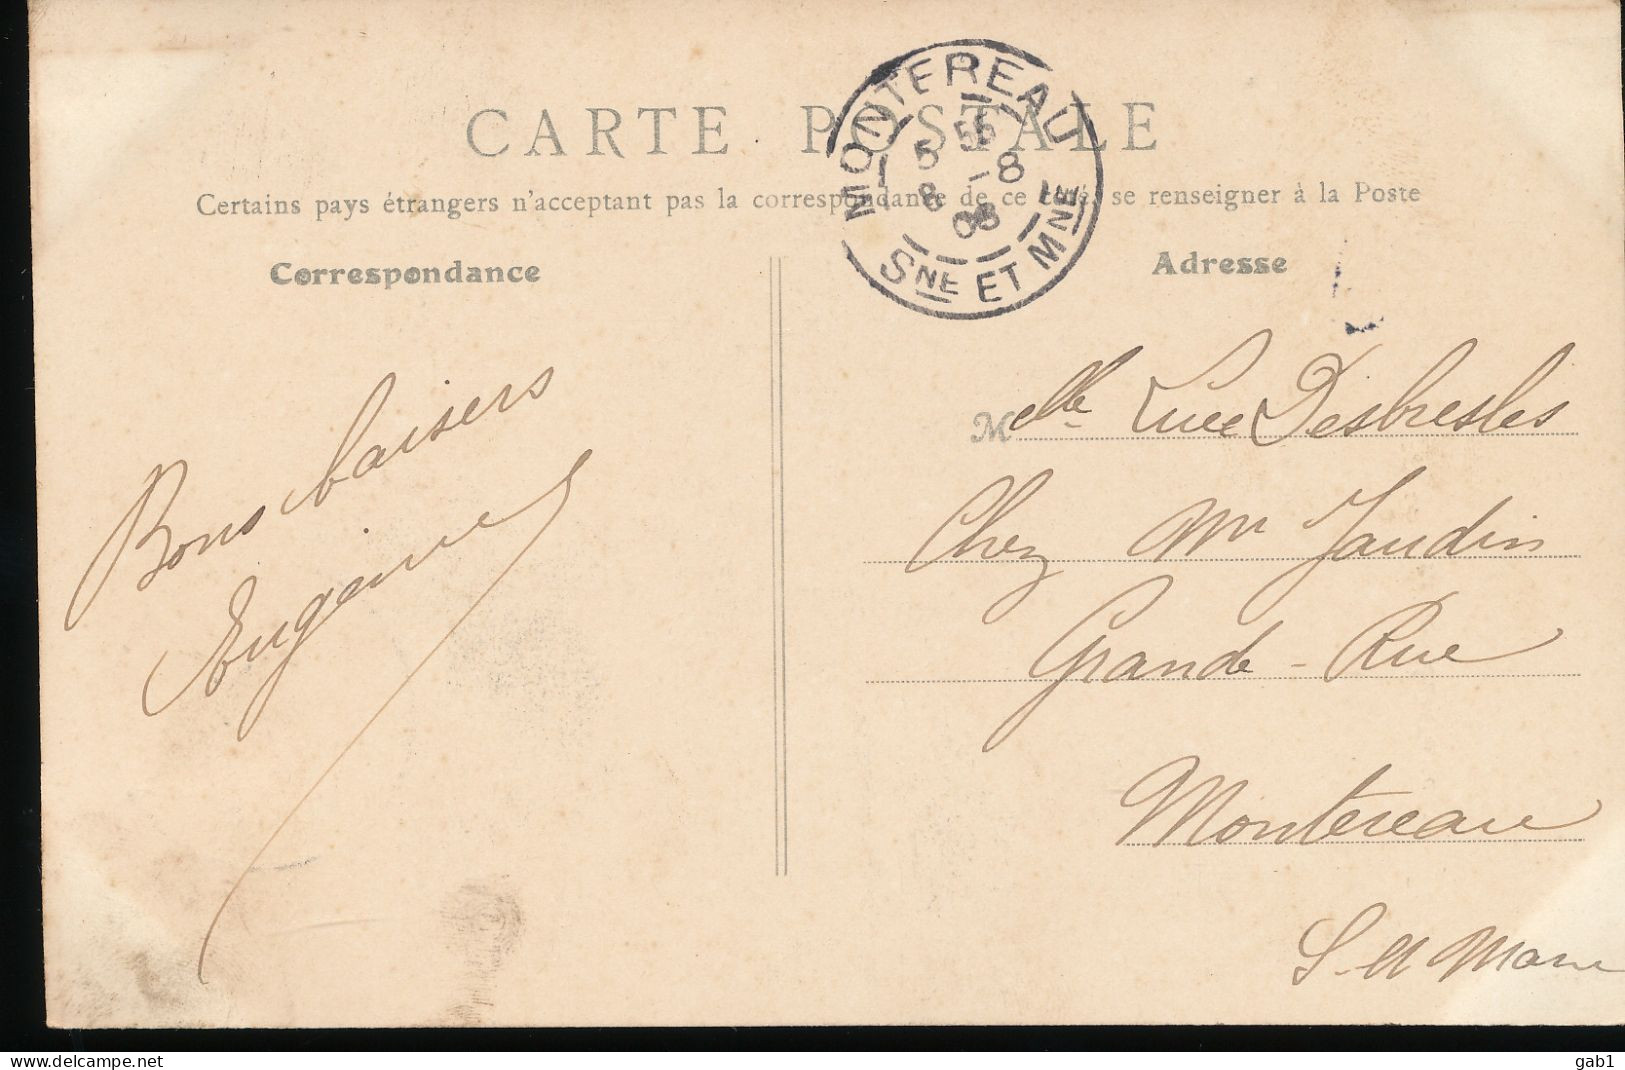 CARTE POSTALE
MONTEREAU
5 55
8 -8
08
SNE ET MNE
Certains pays étrangers n'acceptant pas la correspondance de ce côté, se renseigner à la Poste
Correspondance
Adresse
Bons baisers
Eugénie
Melle Luce Desbresles
Chez Mr Jaudin
Grande-Rue
Montereau
S. et Marne
www.delcampe.net
gab1